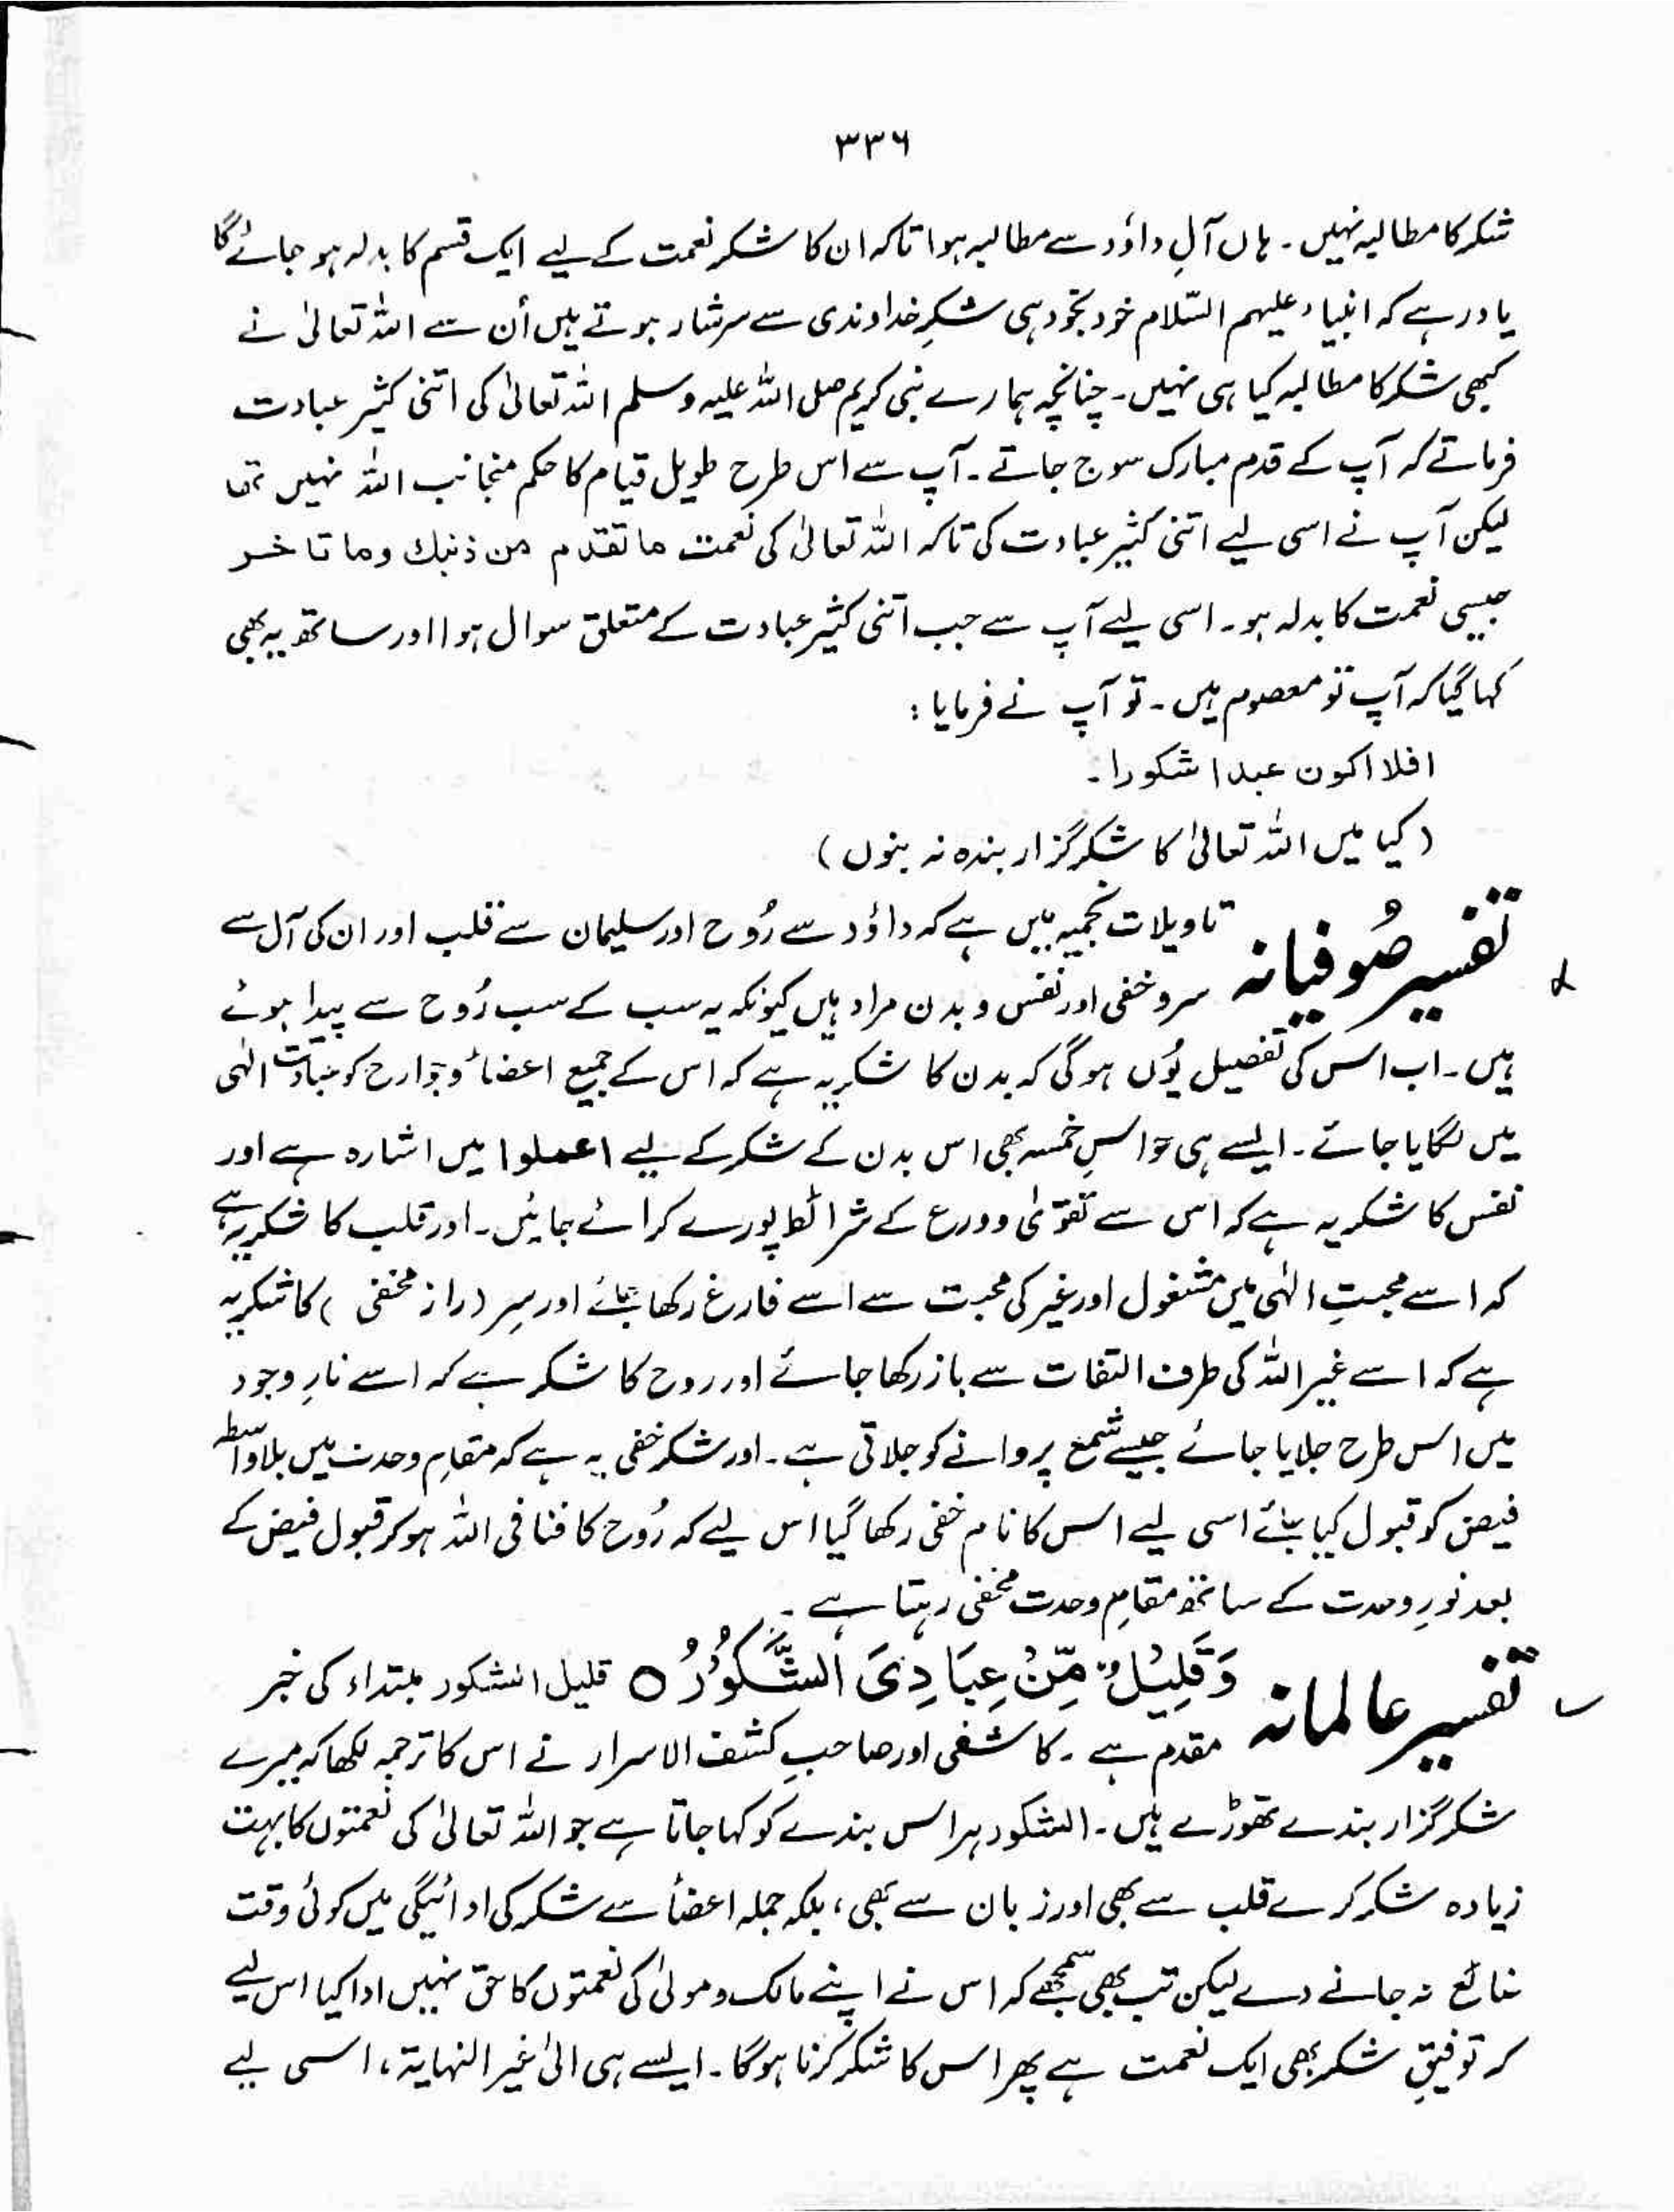 ۳۳۶
شکر کا مطالبہ نہیں۔ ہاں آلِ داؤد سے مطالبہ ہوا تاکہ ان کا شکر نعمت کے لیے ایک قسم کا بدلہ ہو جائے گا
یاد رہے کہ انبیاء علیہم السّلام خود بخود ہی شکرِ خداوندی سے سرشار ہوتے ہیں اُن سے اللہ تعالیٰ نے
کبھی شکر کا مطالبہ کیا ہی نہیں۔ چنانچہ ہمارے نبی کریم صلی اللہ علیہ وسلم اللہ تعالیٰ کی اتنی کثیر عبادت
فرماتے کہ آپ کے قدم مبارک سوج جاتے۔ آپ سے اس طرح طویل قیام کا حکم منجانب اللہ نہیں تھا
لیکن آپ نے اسی لیے اتنی کثیر عبادت کی تاکہ اللہ تعالیٰ کی نعمت ما تقدم من ذنبك وما تاخر
جیسی نعمت کا بدلہ ہو۔ اسی لیے آپ سے جب اتنی کثیر عبادت کے متعلق سوال ہوا اور ساتھ یہ بھی
کہا گیا کہ آپ تو معصوم ہیں۔ تو آپ نے فرمایا :
افلا اکون عبدا شکورا۔
(کیا میں اللہ تعالیٰ کا شکر گزار بندہ نہ بنوں)
تفسیر صُوفیانہ تاویلات نجمیہ میں ہے کہ داؤد سے رُوح اور سلیمان سے قلب اور ان کی آل سے
سر و خفی اور نفس و بدن مراد ہیں کیونکہ یہ سب کے سب رُوح سے پیدا ہوئے
ہیں۔ اب اس کی تفصیل یُوں ہو گی کہ بدن کا شکریہ ہے کہ اس کے جمیع اعضاء و جوارح کو عبادت الٰہی
میں لگایا جائے۔ ایسے ہی حواسِ خمسہ بھی اس بدن کے شکر کے لیے اعملوا میں اشارہ ہے اور
نفس کا شکریہ ہے کہ اس سے تقوٰی و ورع کے شرائط پورے کرائے جائیں۔ اور قلب کا شکریہ ہے
کہ اسے محبتِ الٰہی میں مشغول اور غیر کی محبت سے اسے فارغ رکھا جائے اور سِر (راز مخفی) کا شکریہ
ہے کہ اسے غیر اللہ کی طرف التفات سے باز رکھا جائے اور روح کا شکر ہے کہ اسے نارِ وجود
میں اس طرح جلایا جائے جیسے شمع پروانے کو جلاتی ہے۔ اور شکر خفی یہ ہے کہ مقامِ وحدت میں بلاواسطہ
فیض کو قبول کیا جائے اسی لیے اس کا نام خفی رکھا گیا اس لیے کہ رُوح کا فنا فی اللہ ہو کر قبول فیض کے
بعد نورِ وحدت کے ساتھ مقامِ وحدت مخفی رہتا ہے۔
تفسیر عالمانہ وَقَلِیْلٌ مِّنْ عِبَادِیَ الشَّکُوْرُ ○ قلیل الشکور مبتداء کی خبر
مقدم ہے۔ کاشفی اور صاحبِ کشف الاسرار نے اس کا ترجمہ لکھا کہ میرے
شکر گزار بندے تھوڑے ہیں۔ الشکور ہر اس بندے کو کہا جاتا ہے جو اللہ تعالیٰ کی نعمتوں کا بہت
زیادہ شکر کرے قلب سے بھی اور زبان سے بھی، بلکہ جملہ اعضاء سے شکر کی ادائیگی میں کوئی وقت
ضائع نہ جانے دے لیکن تب بھی سمجھے کہ اس نے اپنے مالک و مولیٰ کی نعمتوں کا حق نہیں ادا کیا اس لیے
کہ توفیقِ شکر بھی ایک نعمت ہے پھر اس کا شکر کرنا ہوگا۔ ایسے ہی الیٰ غیر النہایۃ، اسی لیے